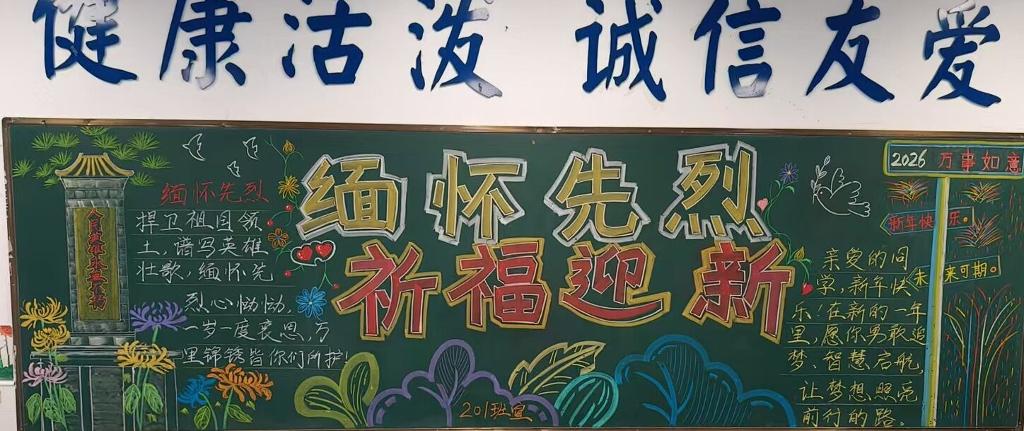 健康活泼 诚信友爱
缅怀先烈
祈福迎新
缅怀先烈
捍卫祖国领
土,谱写英雄
壮歌,缅怀先
烈心恸恸,
一岁一度哀思,万
里锦绣皆你们所护!
人民英雄永垂不朽
201班宣
2026 万事如意
新年快乐。
未来可期。
亲爱的同
学,新年快
乐!在新的一年
里,愿你勇敢追
梦、智慧启航,
让梦想照亮
前行的路。